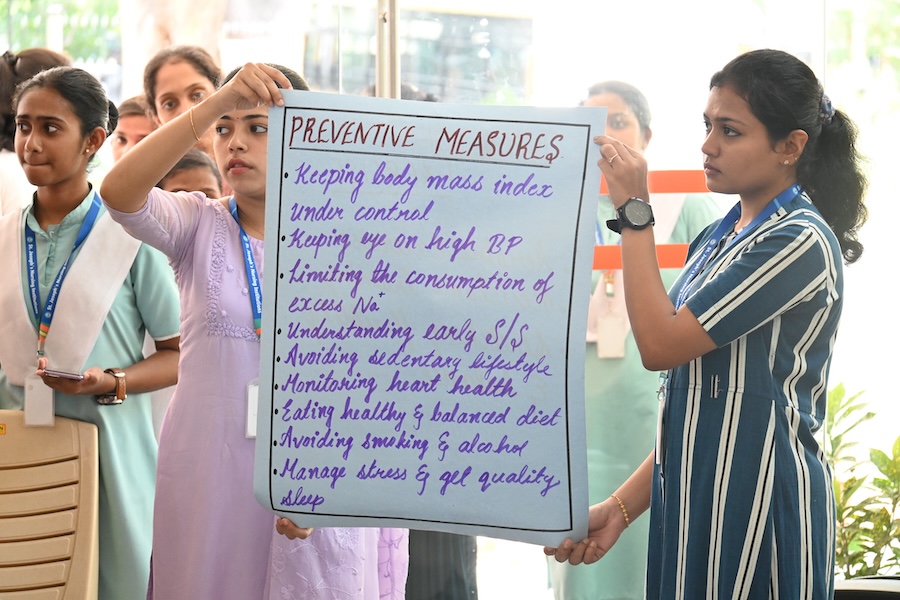 PREVENTIVE MEASURES
• Keeping body mass index
under control
• Keeping eye on high BP
• Limiting the consumption of
excess Na⁺
• Understanding early S/S
• Avoiding sedentary lifestyle
• Monitoring heart health
• Eating healthy & balanced diet
• Avoiding smoking & alcohol
• Manage stress & get quality
sleep
St. Joseph's Nursing Institute